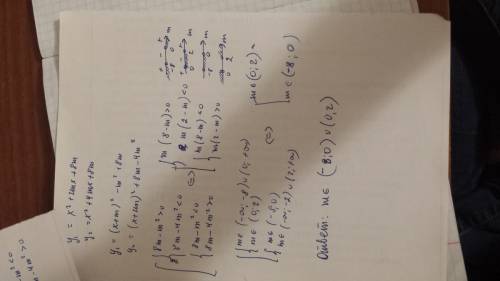 y₁ = x² + 2mx + 8m
y₂ = x² + 4mx + 8m
y₁ = (x+m)² - m² + 8m
y₂ = (x+2m)² + 8m - 4m²
8m - m² > 0
8m - 4m² < 0
8m - m² < 0
8m - 4m² > 0
(=)
m(8-m) > 0
m(2-m) < 0
m(8-m) < 0
m(2-m) > 0
m ∈ (-∞; -8) ∪ (0; +∞)
m ∈ (0; 2)
m ∈ (-8; 0)
m ∈ (-∞; -2) ∪ (2; +∞)
(=)
m ∈ (0; 2)
m ∈ (-8; 0)
Ответ: m ∈ (-8; 0) ∪ (0; 2)